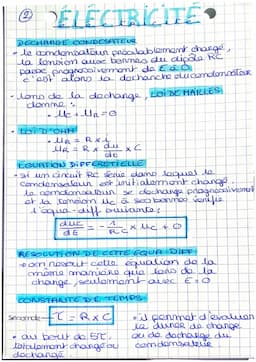 ②
ÉLECTRICITÉ
DECHARGE CONDENSATEUR
• le condensateur préalablement chargé,
la tension aux bornes du dipôle RC
passe progressivement de E à 0
c'est alors la decharge du condensateur
• lors de la decharge, LOI DE MAILLES
donne :
• Uc + UR = 0
• LOI D'OHM
• UR = R × i
UR = R × du/dt × C
EQUATION DIFFERETIELLE
• si un circuit RC série dans lequel le
condensateur est initialement chargé.
le condensateur se decharge progressivement
et la tension Uc à ses bornes verifie
l'equa-diff suivante :
duc/dt = - 1/RC × Uc + 0
RESOLUTION DE CETTE EQUA DIFF
→ on resout cette équation de la
même manière que lors de la
charge, seulement avec E = 0
CONSTANTE DE TEMPS
seconde τ = R × C
• au bout de 5τ,
totalement chargé ou
decharge
• il permet d'évaluer
la durée de charge
ou de decharge du
condensateur